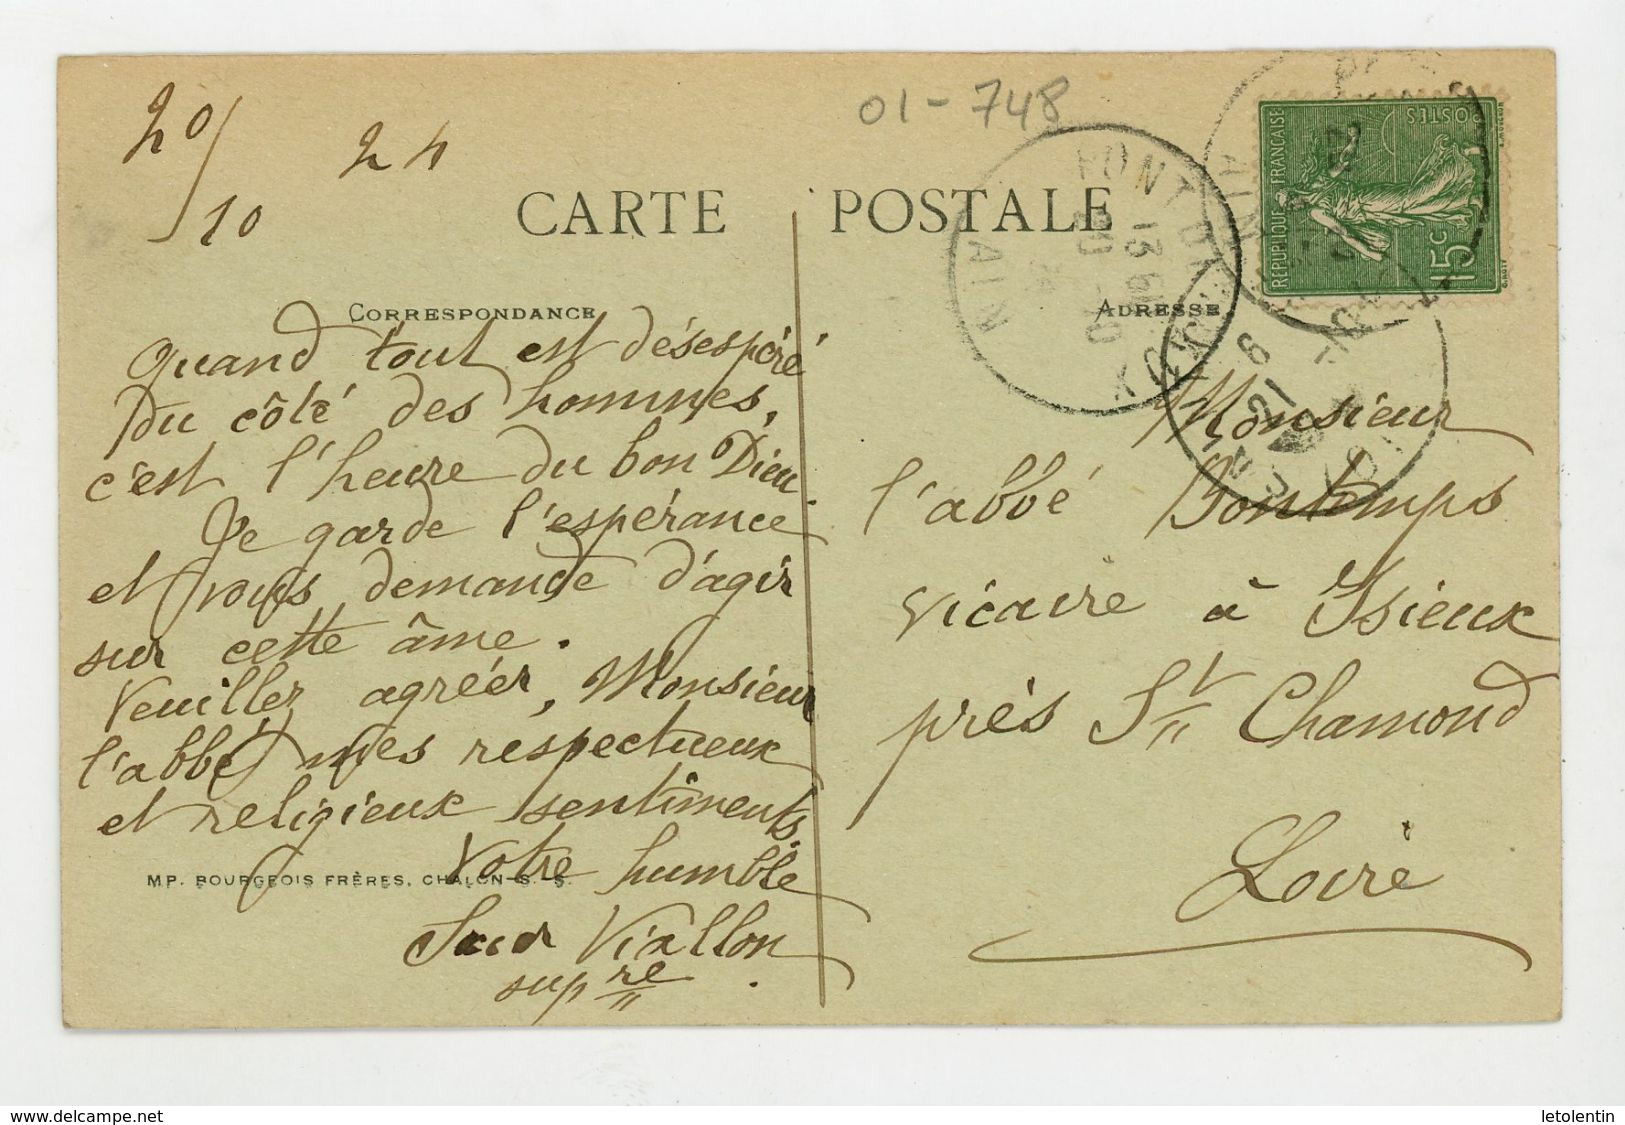 01-748
20/10 24
CARTE POSTALE
CORRESPONDANCE
ADRESSE
REPUBLIQUE FRANCAISE
POSTES
15c
PONT DE
13 6
20 -10
AIN
AIN
21
Quand tout est désespéré
du côté des hommes,
c'est l'heure du bon Dieu.
Je garde l'espérance
et vous demande d'agir
sur cette âme.
Veuillez agréer, Monsieur
l'abbé mes respectueux
et religieux sentiments.
Votre humble
Sœur Viallon
supre
MP. BOURGEOIS FRÈRES, CHALON-S.-S.
Monsieur
l'abbé Bontemps
vicaire à Isieux
près St Chamond
Loire
www.delcampe.net
letolentin